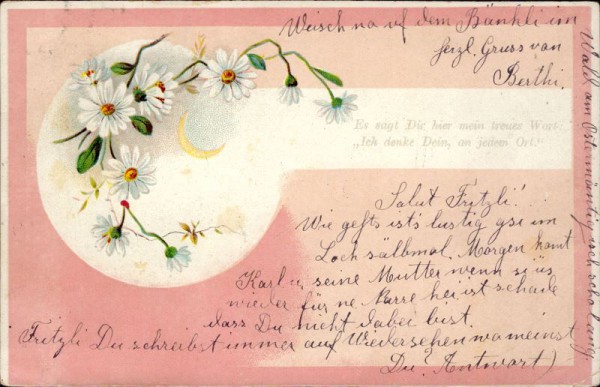 Weisch na uf dem Bänkli im
herzl. Gruss von
Berthi.
Wald am Ostermäntig isch scho lang.
Es sagt Dir hier mein treues Wort:
„Ich denke Dein, an jedem Ort."
Salut Fritzli!
Wie gehts ist's lustig gsi im
Loch sälbmal. Morgen komt
Karl u. seine Mutter wenn si üs
wieder für ne Narre hei ist schade
dass Du nicht dabei bist.
Fritzli Du schreibst immer auf Wiedersehen wo meinst
Du? Antwort)